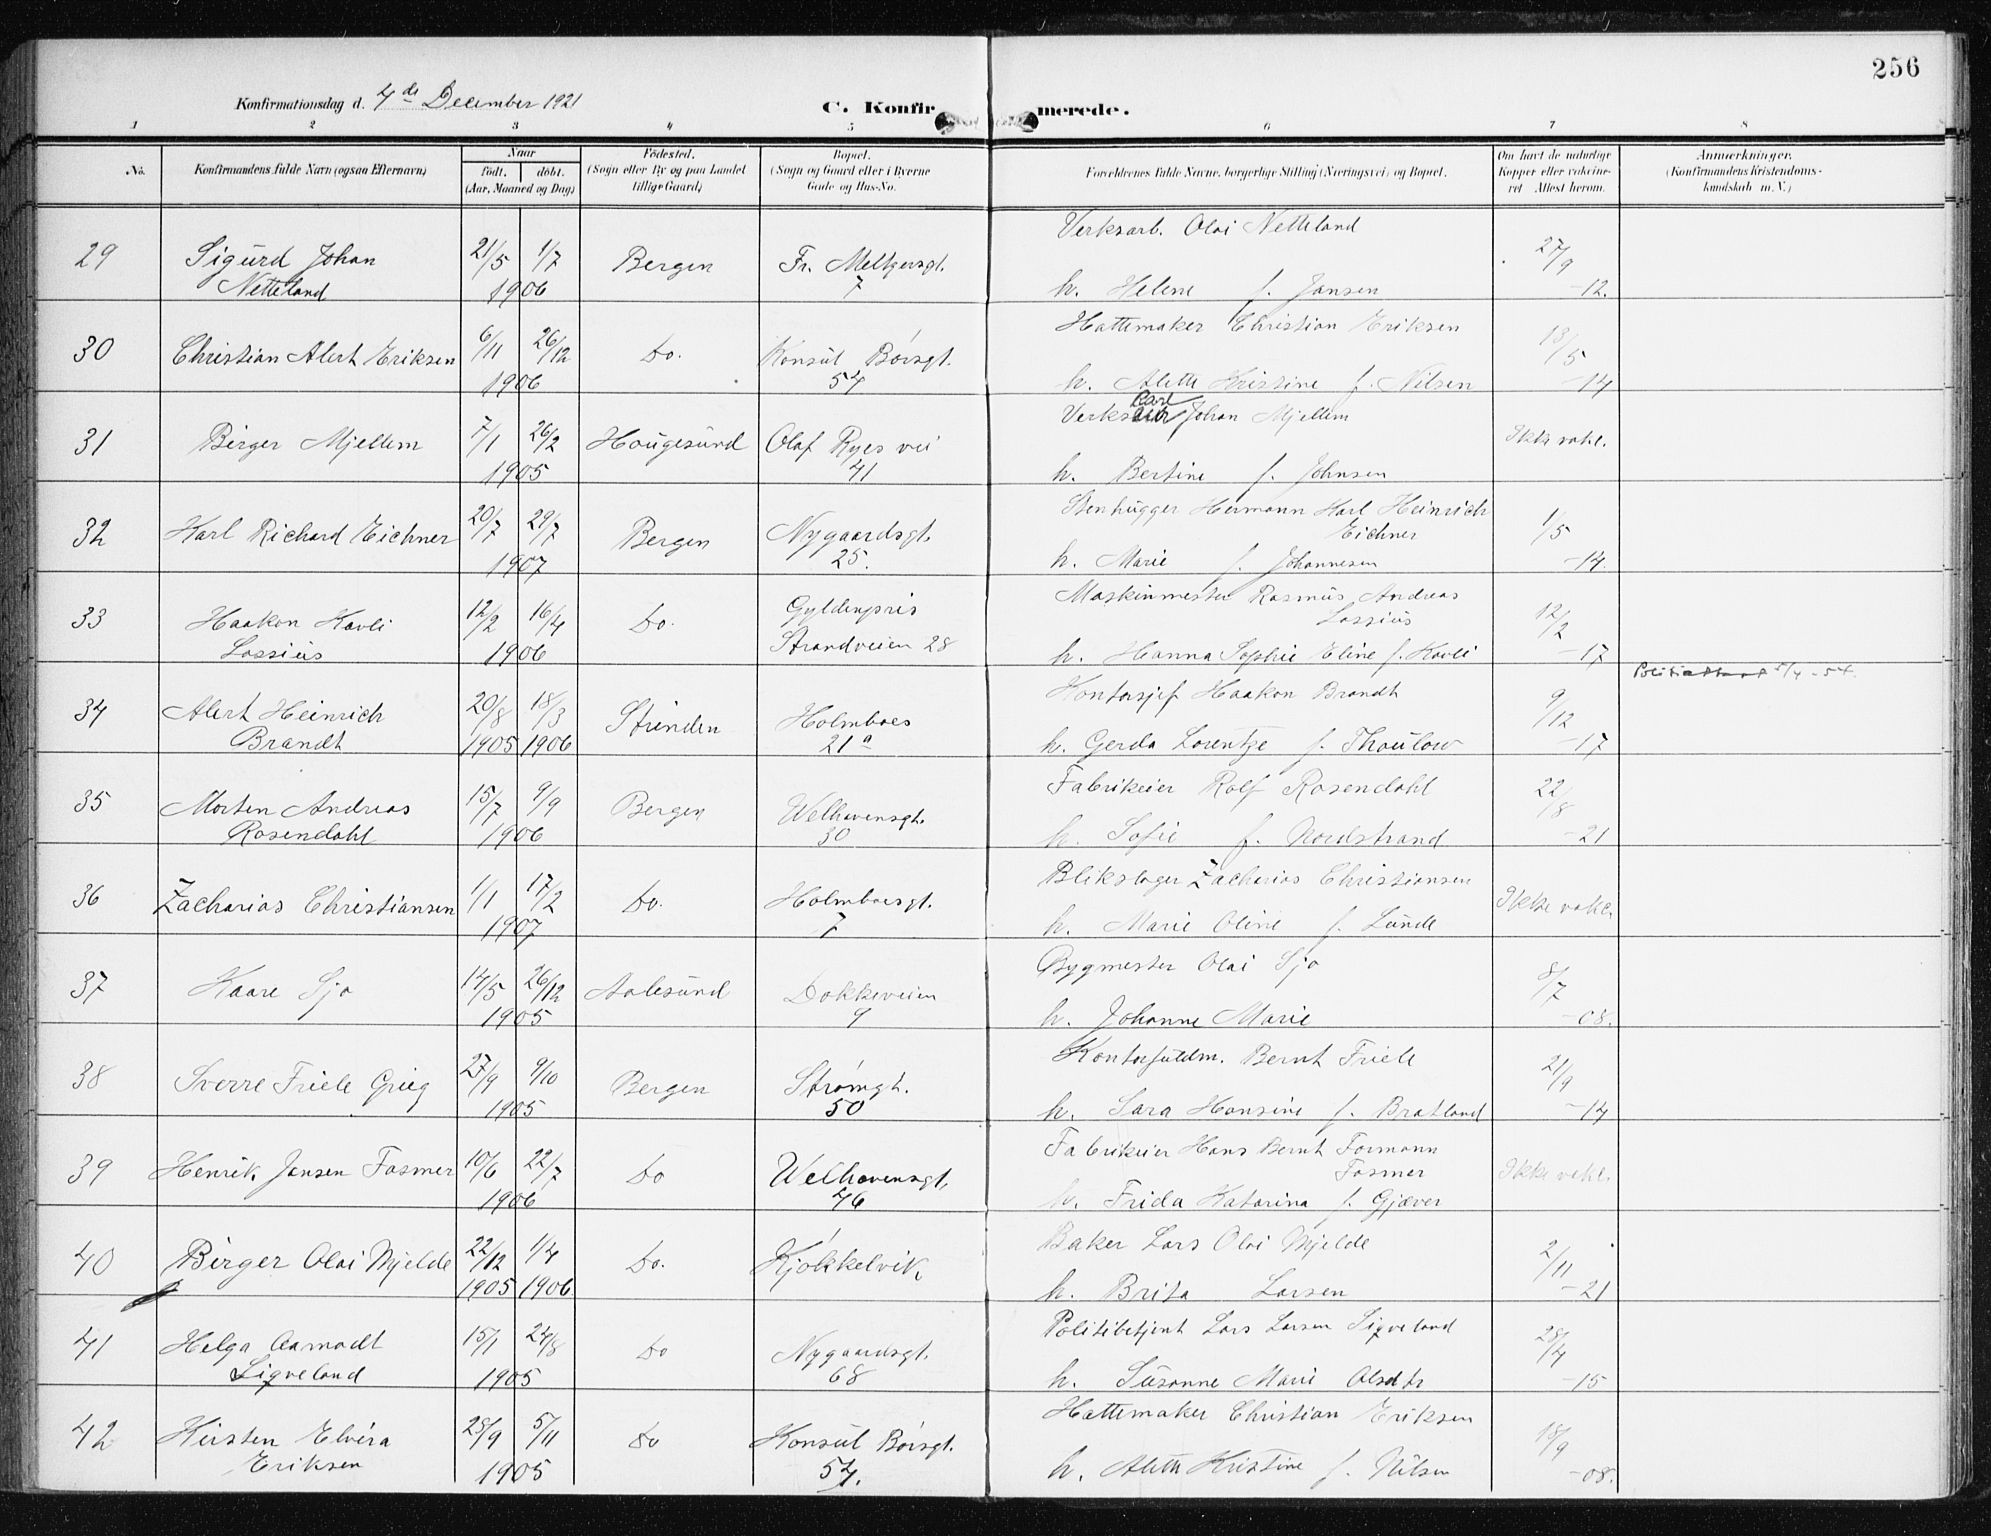 256
Konfirmationsdag d. 4de December 1921
C. Konfirmerede.
1 2 3 4 5 6 7 8
No.
Konfirmandens fulde Navn (ogsaa Efternavn)
Naar
født. døbt.
(Aar, Maaned og Dag)
Fødested.
(Sogn eller By og paa Landet
tillige Gaard)
Bopæl.
(Sogn og Gaard eller i Byerne
Gade og Hus-No.
Forældrenes fulde Navne, borgerlige Stilling (Næringsvei) og Bopæl.
Om havt de naturlige
Kopper eller vaccine-
ret Attest herom.
Anmærkninger.
(Konfirmandens Kristendoms-
kundskab m. V.)
29 Sigurd Johan 21/5 1/7 Bergen Fr. Meltzersgt. Verksarb. Olai Netteland 27/9
Netteland 1906 7 h. Helene f. Jansen -12.
30 Christian Alert Eriksen 6/11 26/12 Do. Konsul Børsgt. Hattemaker Christian Eriksen 18/5
1906 54 h. Alette Kristine f. Nilsen -14
31 Birger Mjellem 7/1 26/2 Hougesund Olaf Ryes vei Carl Johan Mjellem Ikke vakc.
1905 41 h. Bertine f. Johnsen
32 Karl Richard Eichner 20/7 29/7 Bergen Nygaardsgt. Stenhugger Hermann Karl Heinrich 1/5
Eichner
1907 25. h. Marie f. Johannesen -14.
33 Haakon Kavli 12/2 16/4 Do. Gyldenpris Maskinmester Rasmus Andreas 12/2
Lossius
Lossius 1906 Strandveien 28 h. Hanna Sophie Eline f. Kavli -17
Politiattest 5/4-54.
34 Alert Heinrich 20/8 18/3 Strinden Holmboes Kontorsjef Haakon Brandt 9/12
Brandt 1905 1906 21a h. Gerda Lorentze f. Thaulow -17
35 Morten Andreas 15/7 9/9 Bergen Welhavensgt. Fabrikeier Rolf Rosendahl 22/8
Rosendahl 1906 30 h. Sofie f. Nordstrand -21
36 Zacharias Christiansen 1/1 17/2 Do. Holmboesgt. Blikslager Zacharias Christiansen Ikke vakc.
1907 7 h. Marie Oline f. Lunde
37 Kaare Sjo 14/5 26/12 Aalesund Dokkeveien Bygmester Olai Sjo 8/7
1905 9 h. Johanne Marie -08.
38 Sverre Friele Grieg 27/9 9/10 Bergen Strømgt. Kontorfuldm. Bernt Friele 21/9
1905 50 h. Sara Hansine f. Bratland -14
39 Henrik Jansen Fasmer 10/6 22/7 Do Welhavensgt. Fabrikeier Hans Bernt Formann Ikke vakc.
Fasmer
1906 76 h. Frida Katarina f. Gjæver
40 Birger Olai Mjelde 22/12 1/4 Do. Kjøkkelvik Baker Lars Olai Mjelde 2/11
1905 1906 h. Brita Larsen -21
41 Helga Aamodt 15/1 24/8 Do Nygaardsgt. Politibetjent Lars Larsen Sigveland 28/4
Sigveland 1905 68 h. Susanne Marie Olsdtr -15
42 Kirsten Elvira 28/9 5/11 Do Konsul Børsgt. Hattemaker Christian Eriksen 18/9
Eriksen 1905 54. h. Alette Kristine f. Nilsen -08.